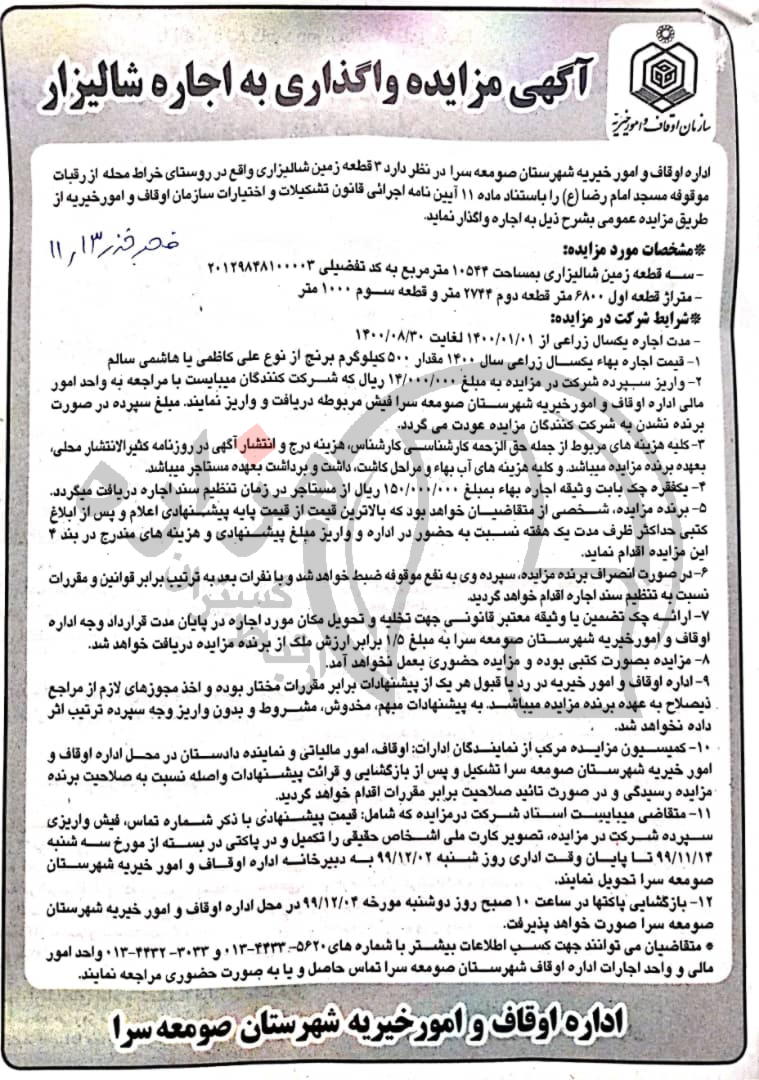 سازمان اوقاف و امور خیریه
آگهی مزایده واگذاری به اجاره شالیزار
اداره اوقاف و امور خیریه شهرستان صومعه سرا در نظر دارد ۳ قطعه زمین شالیزاری واقع در روستای خراط محله از رقبات
موقوفه مسجد امام رضا (ع) را باستناد ماده ۱۱ آیین نامه اجرائی قانون تشکیلات و اختیارات سازمان اوقاف و امورخیریه از
طریق مزایده عمومی بشرح ذیل به اجاره واگذار نماید.
۱۱ ر ۱۳
*مشخصات مورد مزایده:
- سه قطعه زمین شالیزاری بمساحت ۱۰۵۴۴ مترمربع به کد تفضیلی ۲۰۱۲۹۸۴۸۱۰۰۰۰۳
- متراژ قطعه اول ۶۸۰۰ متر قطعه دوم ۲۷۴۴ متر و قطعه سوم ۱۰۰۰ متر
*شرایط شرکت در مزایده:
- مدت اجاره یکسال زراعی از ۱۴۰۰/۰۱/۰۱ لغایت ۱۴۰۰/۰۸/۳۰
۱- قیمت اجاره بهاء یکسال زراعی سال ۱۴۰۰ مقدار ۵۰۰ کیلوگرم برنج از نوع علی کاظمی یا هاشمی سالم
۲- واریز سپرده شرکت در مزایده به مبلغ ۱۴/۰۰۰/۰۰۰ ریال که شرکت کنندگان میبایست با مراجعه به واحد امور
مالی اداره اوقاف و امورخیریه شهرستان صومعه سرا فیش مربوطه دریافت و واریز نمایند. مبلغ سپرده در صورت
برنده نشدن به شرکت کنندگان مزایده عودت می گردد.
۳- کلیه هزینه های مربوط از جمله حق الزحمه کارشناسی کارشناس، هزینه درج و انتشار آگهی در روزنامه کثیرالانتشار محلی،
بعهده برنده مزایده میباشد. و کلیه هزینه های آب بهاء و مراحل کاشت، داشت و برداشت بعهده مستاجر میباشد.
۴- یکفقره چک بابت وثیقه اجاره بهاء بمبلغ ۱۵۰/۰۰۰/۰۰۰ ریال از مستاجر در زمان تنظیم سند اجاره دریافت میگردد.
۵- برنده مزایده، شخصی از متقاضیان خواهد بود که بالاترین قیمت از قیمت پایه پیشنهادی اعلام و پس از ابلاغ
کتبی حداکثر ظرف مدت یک هفته نسبت به حضور در اداره و واریز مبلغ پیشنهادی و هزینه های مندرج در بند ۴
این مزایده اقدام نماید.
۶- در صورت انصراف برنده مزایده، سپرده وی به نفع موقوفه ضبط خواهد شد و با نفرات بعد به ترتیب برابر قوانین و مقررات
نسبت به تنظیم سند اجاره اقدام خواهد گردید.
۷- ارائه چک تضمین یا وثیقه معتبر قانونی جهت تخلیه و تحویل مکان مورد اجاره در پایان مدت قرارداد وجه اداره
اوقاف و امورخیریه شهرستان صومعه سرا به مبلغ ۱/۵ برابر ارزش ملک از برنده مزایده دریافت خواهد شد.
۸- مزایده بصورت کتبی بوده و مزایده حضوری بعمل نخواهد آمد.
۹- اداره اوقاف و امور خیریه در رد یا قبول هر یک از پیشنهادات برابر مقررات مختار بوده و اخذ مجوزهای لازم از مراجع
ذیصلاح به عهده برنده مزایده میباشد. به پیشنهادات مبهم، مخدوش، مشروط و بدون واریز وجه سپرده ترتیب اثر
داده نخواهد شد.
۱۰- کمیسیون مزایده مرکب از نمایندگان ادارات: اوقاف، امور مالیاتی و نماینده دادستان در محل اداره اوقاف و
امور خیریه شهرستان صومعه سرا تشکیل و پس از بازگشایی و قرائت پیشنهادات واصله نسبت به صلاحیت برنده
مزایده رسیدگی و در صورت تائید صلاحیت برابر مقررات اقدام خواهد گردید.
۱۱- متقاضی میبایست اسناد شرکت درمزایده که شامل: قیمت پیشنهادی با ذکر شماره تماس، فیش واریزی
سپرده شرکت در مزایده، تصویر کارت ملی اشخاص حقیقی را تکمیل و در پاکتی در بسته از مورخ سه شنبه
۹۹/۱۱/۱۴ تا پایان وقت اداری روز شنبه ۹۹/۱۲/۰۲ به دبیرخانه اداره اوقاف و امور خیریه شهرستان
صومعه سرا تحویل نمایند.
۱۲- بازگشایی پاکتها در ساعت ۱۰ صبح روز دوشنبه مورخه ۹۹/۱۲/۰۴ در محل اداره اوقاف و امور خیریه شهرستان
صومعه سرا صورت خواهد پذیرفت.
* متقاضیان می توانند جهت کسب اطلاعات بیشتر با شماره های ۵۶۲۰-۴۴۳۳-۰۱۳ و ۳۰۳۳-۴۴۳۲-۰۱۳ واحد امور
مالی و واحد اجارات اداره اوقاف شهرستان صومعه سرا تماس حاصل و یا به صورت حضوری مراجعه نمایند.
اداره اوقاف و امورخیریه شهرستان صومعه سرا